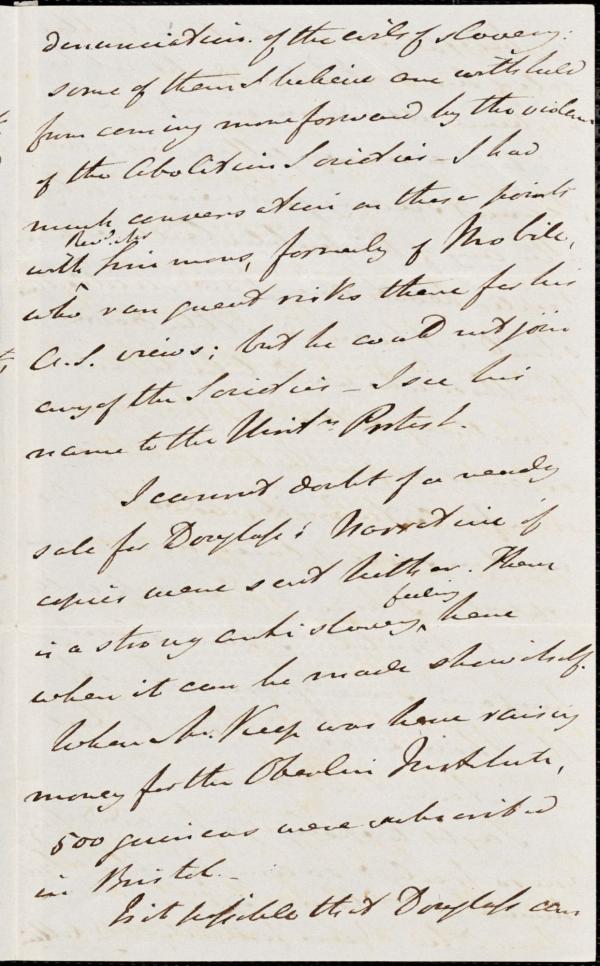 denunciation of the evils of slavery:
some of them I believe are withheld
from coming more forward by the violence
of the Abolition Societies – I had
much conversation on these points
with Revd. Mr Simmons, formerly of Mobile,
who ran great risks there for his
A.S. views; but he could not join
any of the Societies – I see his
name to the Unitn Protest.
I cannot doubt of a ready
sale for Douglass's Narrative if
copies were sent hither. There
is a strong anti slavery feeling, here
when it can be made shew itself.
When Mr. Keep was here raising
money for the Oberlin Institute,
500 guineas were subscribed
in Bristol. –
Is it possible that Douglass can